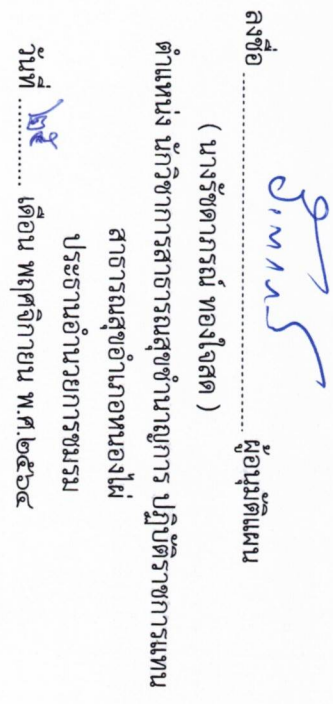 ลงชื่อ ........................................ ผู้อนุมัติแผน
( นางรัชดาภรณ์ ทองใจสด )
ตำแหน่ง นักวิชาการสาธารณสุขชำนาญการ ปฏิบัติราชการแทน
สาธารณสุขอำเภอหนองไผ่
ประธานอำนวยการชมรม
วันที่ ....๒๕.... เดือน พฤศจิกายน พ.ศ.๒๕๖๔